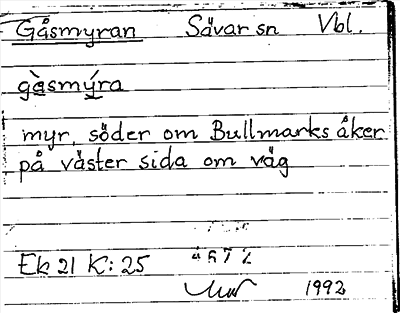 Gåsmyran Sävar sn Vbl.
gåsmýra
myr, söder om Bullmarks åker
på väster sida om väg
Ek 21 K: 25
1992